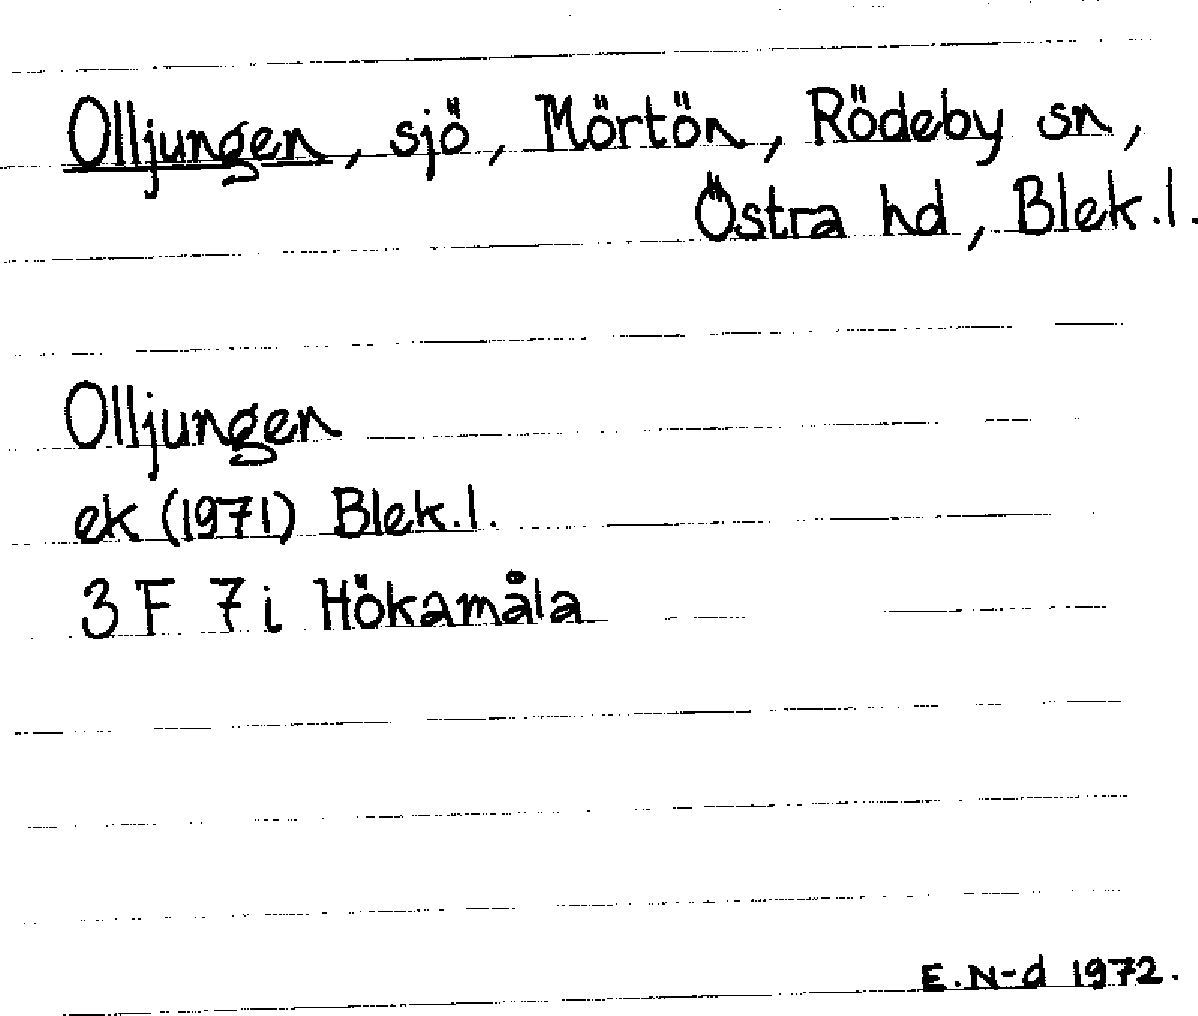 Olljungen, sjö, Mörtön, Rödeby sn,
Östra hd, Blek.l.
Olljungen
ek (1971) Blek.l.
3 F 7 i Hökamåla
E.N-d 1972.